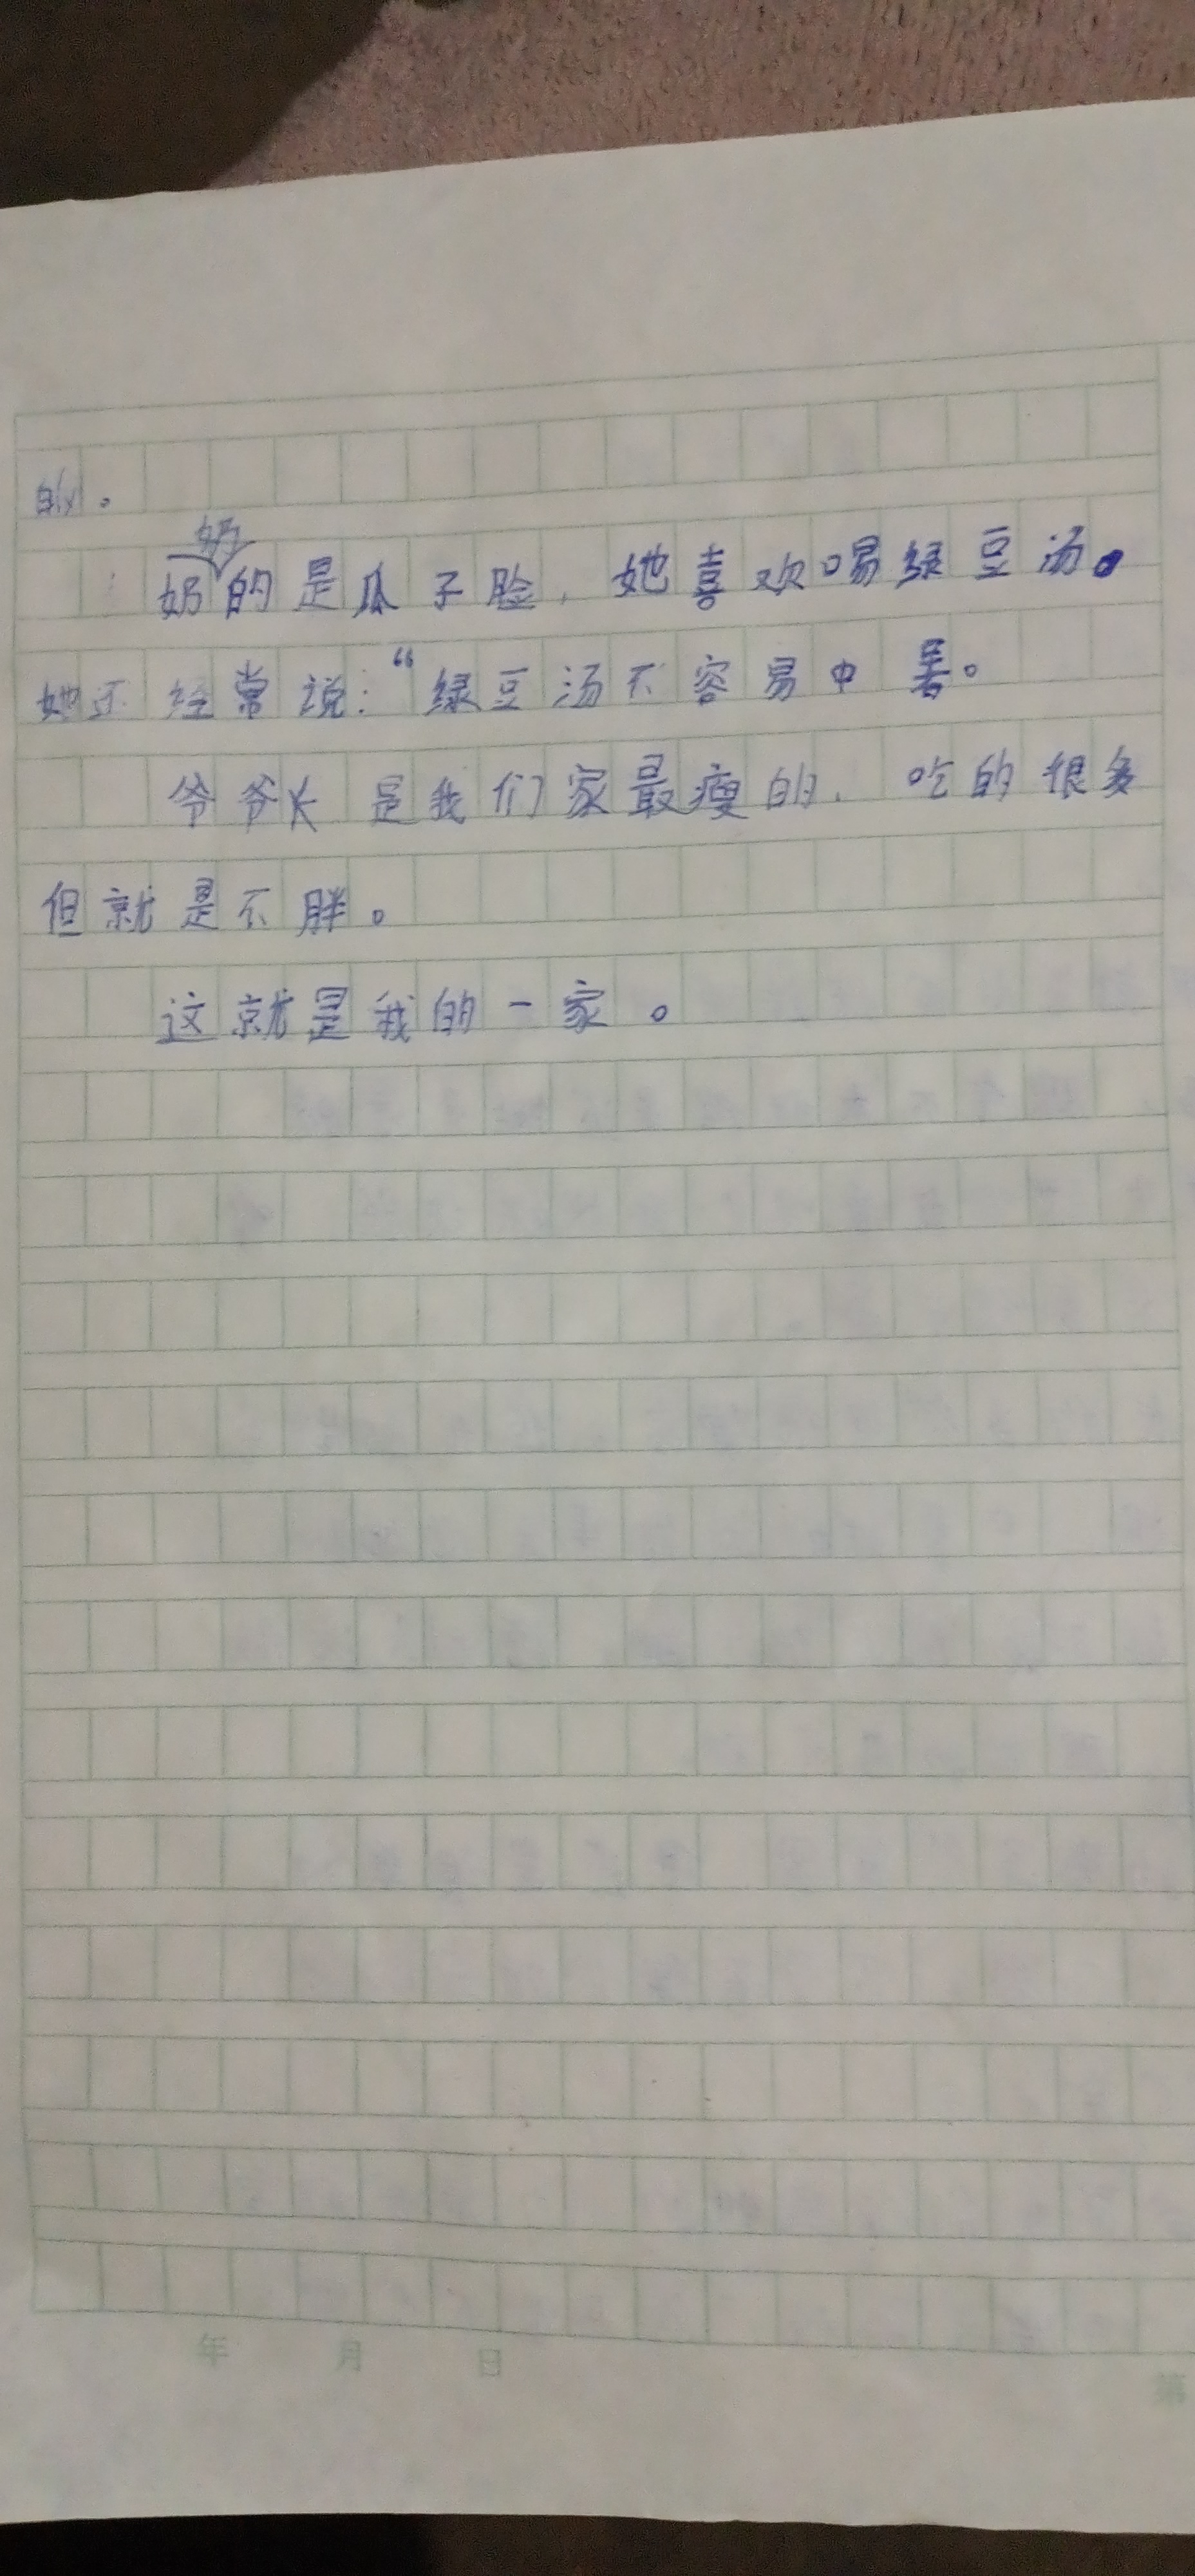 的。
奶奶的是瓜子脸，她喜欢喝绿豆汤。
她还经常说：“绿豆汤不容易中暑。
爷爷长是我们家最瘦的，吃的很多
但就是不胖。
这就是我的一家。
年 月 日
第